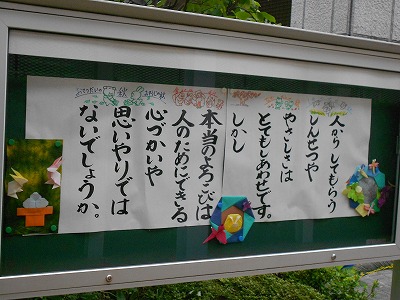 人からしてもらう
しんせつや
やさしさは
とてもしあわせです。
しかし
本当のよろこびは
人のためにできる
心づかいや
思いやりでは
ないでしょうか。